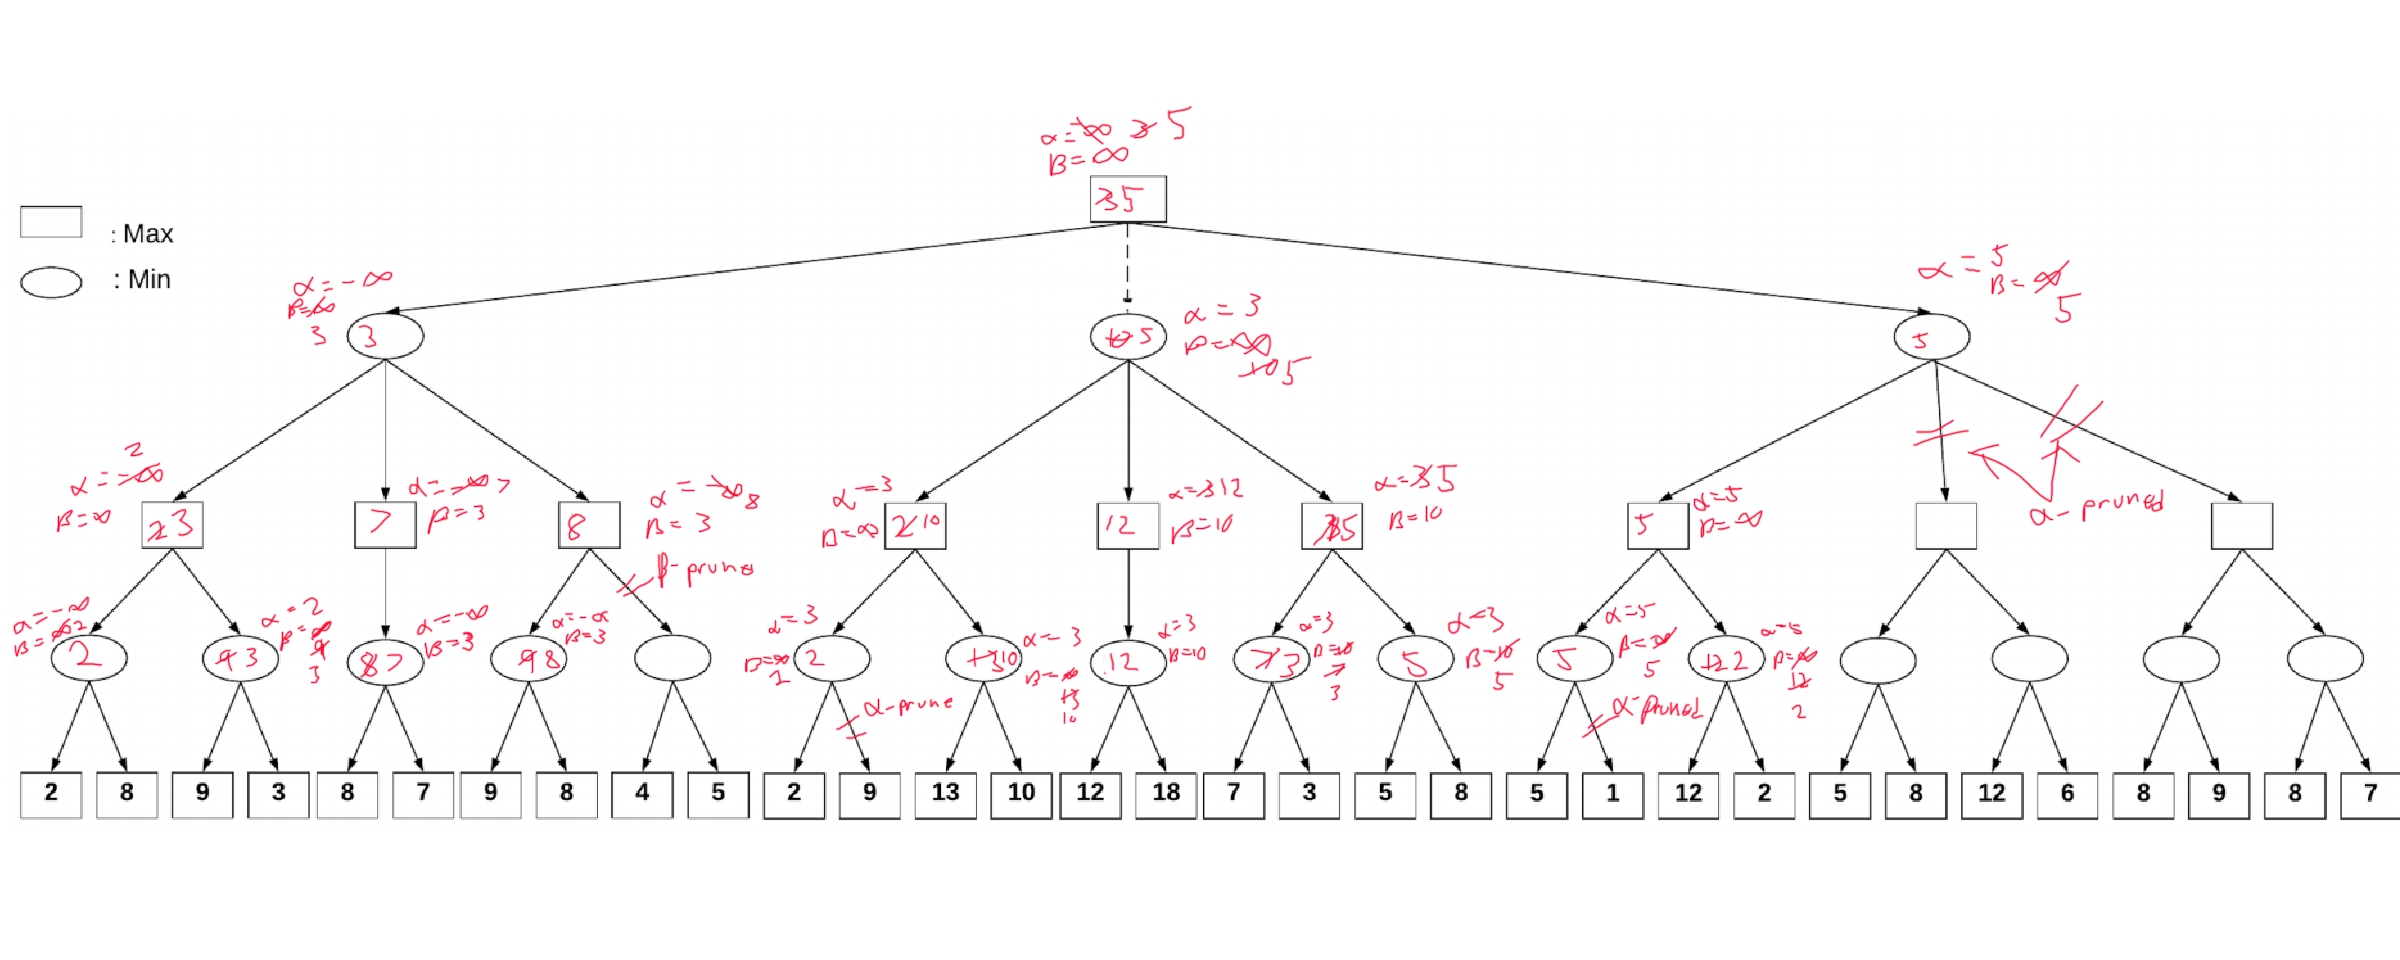 α=-∞ 3 5
β=∞
35
: Max
: Min
α=-∞
β=∞
3
3
α=3
β=∞
10 5
10 5
α=5
β=∞
5
5
2
α=-∞
β=∞
23
α=-∞ 7
β=3
7
α=-∞ 8
β=3
8
β-prune
α=3
β=∞
2 10
α=3 12
β=10
12
α=3 5
β=10
35
α=5
β=∞
5
α-pruned
α=-∞
β=∞ 2
2
α=2
β=∞
9
3
9 3
α=-∞
β=3
8 7
α=-∞
β=3
9 8
α=3
β=∞
2
2
α-prune
α=3
β=∞
13
10
13 10
α=3
β=10
12
α=3
β=10
7
3
7 3
α=3
β=10
5
5
α=5
β=∞
5
5
α-pruned
α=5
β=∞
12
2
12 2
2 8 9 3 8 7 9 8 4 5 2 9 13 10 12 18 7 3 5 8 5 1 12 2 5 8 12 6 8 9 8 7